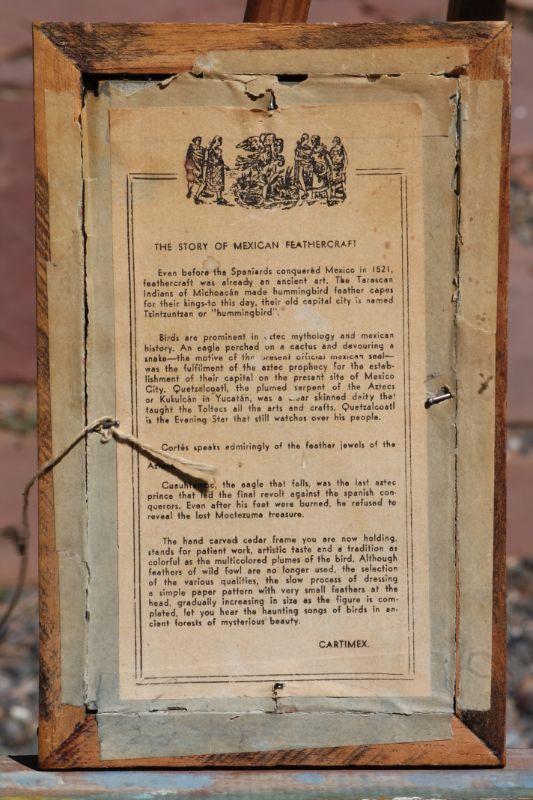 THE STORY OF MEXICAN FEATHERCRAFT
Even before the Spaniards conquered Mexico in 1521,
feathercraft was already an ancient art. The Tarascan
Indians of Michoacán made hummingbird feather capes
for their kings-to this day, their old capital city is named
Tzintzuntzan or "hummingbird".
Birds are prominent in aztec mythology and mexican
history. An eagle perched on a cactus and devouring a
snake—the motive of the present official mexican seal—
was the fulfilment of the aztec prophecy for the estab-
lishment of their capital on the present site of Mexico
City. Quetzalcoatl, the plumed serpent of the Aztecs
or Kukulcán in Yucatán, was a skinned deity that
taught the Toltecs all the arts and crafts. Quetzalcoatl
is the Evening Star that still watches over his people.
Cortés speaks admiringly of the feather jewels of the
Aztecs
Cuauhtemoc, the eagle that falls, was the last aztec
prince that led the final revolt against the spanish con-
querors. Even after his feet were burned, he refused to
reveal the lost Moctezuma treasure.
The hand carved cedar frame you are now holding,
stands for patient work, artistic taste and a tradition as
colorful as the multicolored plumes of the bird. Although
feathers of wild fowl are no longer used, the selection
of the various qualities, the slow process of dressing
a simple paper pattern with very small feathers at the
head, gradually increasing in size as the figure is com-
pleted, let you hear the haunting songs of birds in an-
cient forests of mysterious beauty.
CARTIMEX.